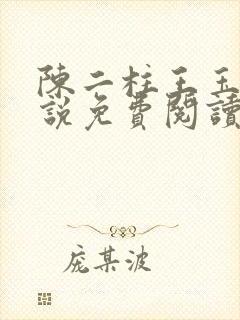 陳二柱王玉
說免費閱讀
庞某波